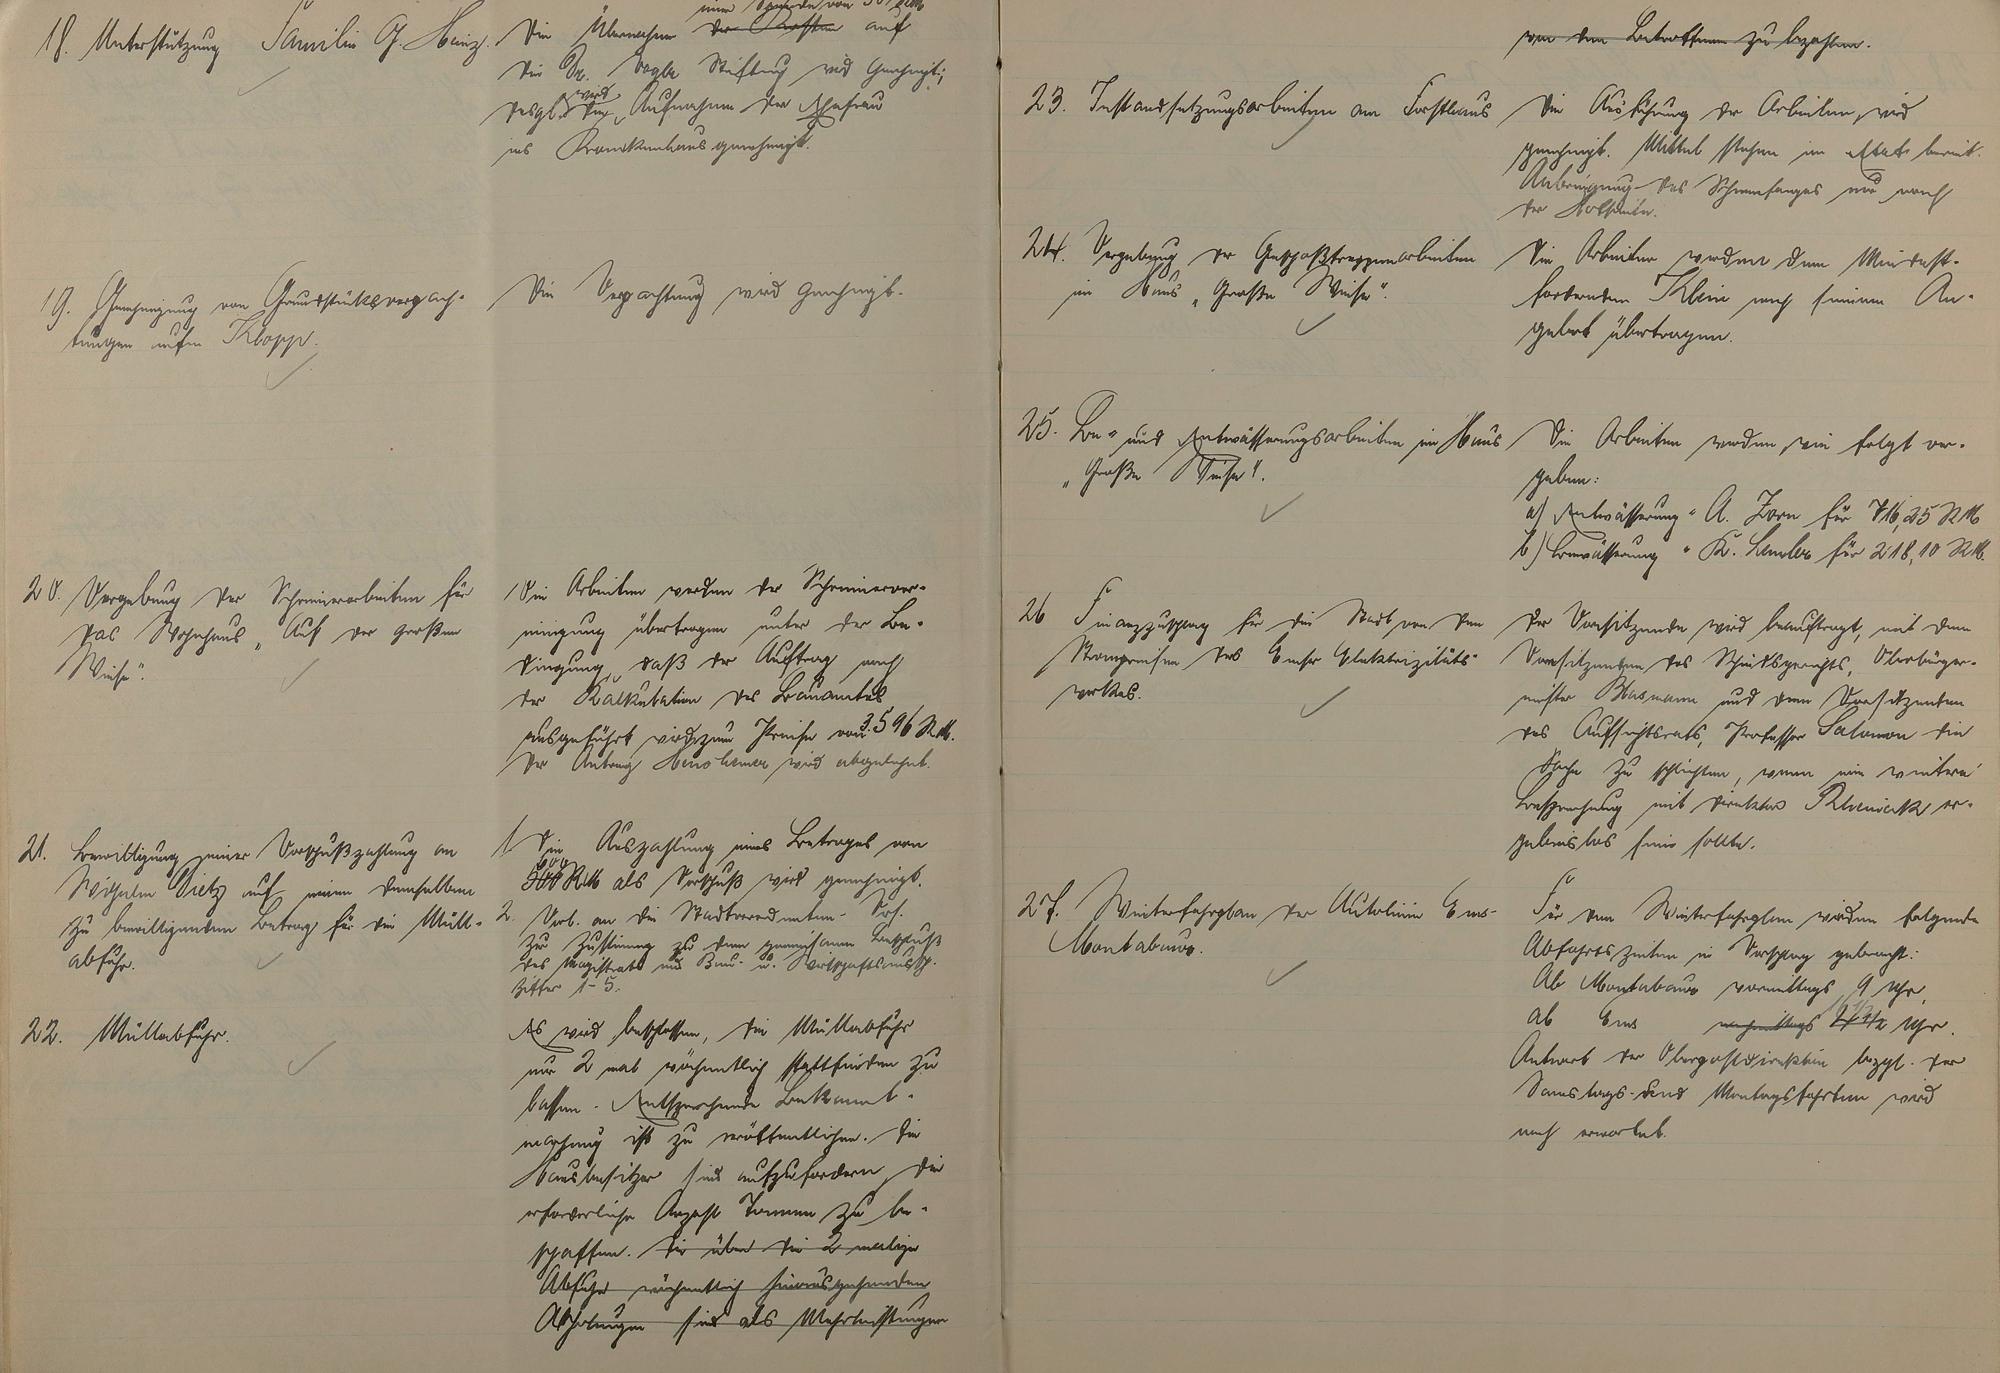 18. Unterstützung Familie G. Heinz.
einer Spende von 50 RM
Die Übernahme der Kosten auf
die Dr. Vogler Stiftung wird genehmigt;
desgl. wird die Aufnahme der Ehefrau
ins Krankenhaus genehmigt.
19. Genehmigung von Grundstücksverpach-
tungen aufm Klopp.
Die Verpachtung wird genehmigt.
20. Vergebung der Schreinerarbeiten für
das Wohnhaus „Auf der Großen
Wiese".
Die Arbeiten werden der Schreinerver-
einigung übertragen unter der Be-
dingung, daß der Auftrag nach
der Kalkulation des Bauamtes
ausgeführt wird zum Preise von 3.596 RM.
Der Antrag wird abgelehnt.
21. Bewilligung einer Vorschußzahlung an
Wilhelm Dietz auf einen demselben
zu bewilligenden Betrag für die Müll-
abfuhr.
1. Die Auszahlung eines Betrages von
600
500 RM als Vorschuß wird genehmigt.
2. Vorl. an die Stadtverordneten-Vers.
zur Zustimmung zu dem gemeinsamen Beschluß
des Magistrats und Bau- u. Wirtschaftsaussch.
Ziffer 1-5.
22. Müllabfuhr.
Es wird beschlossen, die Müllabfuhr
nur 2 mal wöchentlich stattfinden zu
lassen. Entsprechende Bekannt-
machung ist zu veröffentlichen. Die
Hausbesitzer sind aufzufordern, die
erforderliche Anzahl Tonnen zu be-
schaffen. Die über die 2 malige
Abfuhr wöchentlich hinausgehenden
Abholungen sind als Mehrleistungen
von den Betroffenen zu bezahlen.
23. Instandsetzungsarbeiten am Forsthaus
Die Ausführung der Arbeiten wird
genehmigt. Mittel stehen im Etat bereit.
Anbringung des Schneefanges nur nach
der Hofseite.
24. Vergebung der Geschoßtreppenarbeiten
im Haus „Große Wiese".
Die Arbeiten werden dem Mindest-
fordernden Klein nach seinem An-
gebot übertragen.
25. Be- und Entwässerungsarbeiten im Haus
„Große Wiese".
Die Arbeiten werden wie folgt ver-
geben:
a) Entwässerung - A. Zorn für 716,25 RM
b) Bewässerung - K. Lemler für 218,10 RM.
26 Finanzzuschlag für die Stadt von den
Strompreisen des Emser Elektrizitäts-
werkes.
Der Vorsitzende wird beauftragt, mit dem
Vorsitzenden des Schiedsgerichts, Oberbürger-
meister und dem Vorsitzenden
des Aufsichtsrats, Professor Salomon die
Sache zu schlichten, wenn eine weitere
Besprechung mit Direktor er-
gebnislos sein sollte.
27. Winterfahrplan der Autolinie Ems-
Montabaur.
Für den Winterfahrplan werden folgende
Abfahrtszeiten in Vorschlag gebracht:
Ab Montabaur vormittags 9 Uhr,
ab Ems nachmittags Uhr.
Antwort der Oberpostdirektion bezgl. der
Samstags- und Montagsfahrten wird
noch erwartet.